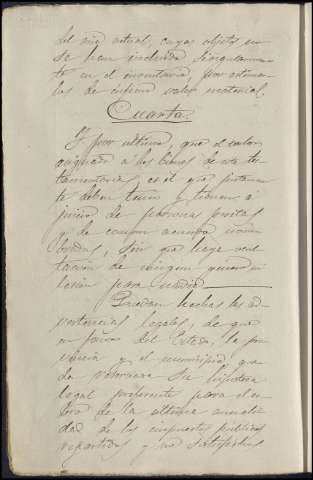 del año actual, cuyos objetos no
se han incluido singularmen-
te en el inventario, por estimar-
los de infimo valor material.
Cuarta.
Y por ultimo, que el valor
asignado a los bienes de esta tes-
tamentaria es el que justamen-
te deben tener y tienen á
juicio de personas peritas
que de comun acuerdo nom-
braron, sin que haya ocul-
tación de ningun genero ni
lesión para nadie.
Quedan hechas las ad-
vertencias legales, de que
en favor del Estado, la pro-
vincia y el municipio que-
da reservada su hipoteca
legal preferente para el co-
bro de la ultima anuali-
dad de los impuestos públicos
repartidos y no satisfechos